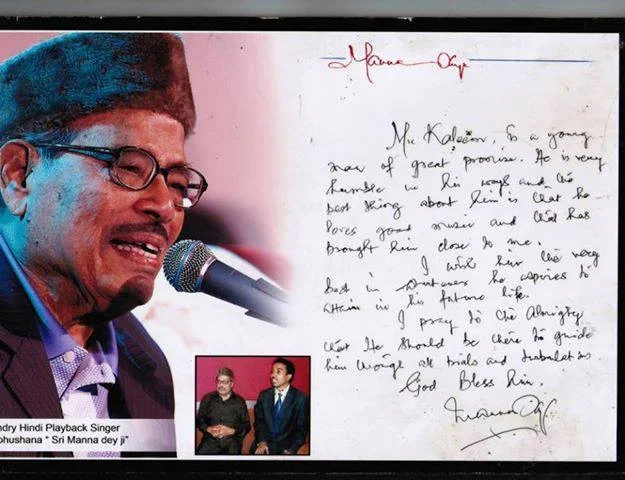 Manna Dey
Mr Kaleem, is a young
man of great promise. He is very
humble in his ways and the
best thing about him is that he
loves good music and that has
brought him close to me.
I wish him the very
best in whatever he aspires to
attain in his future life.
I pray to the Almighty
that He should be there to guide
him through all trials and tribulations
God Bless him.
Manna Dey
ndry Hindi Playback Singer
bhushana " Sri Manna dey ji"